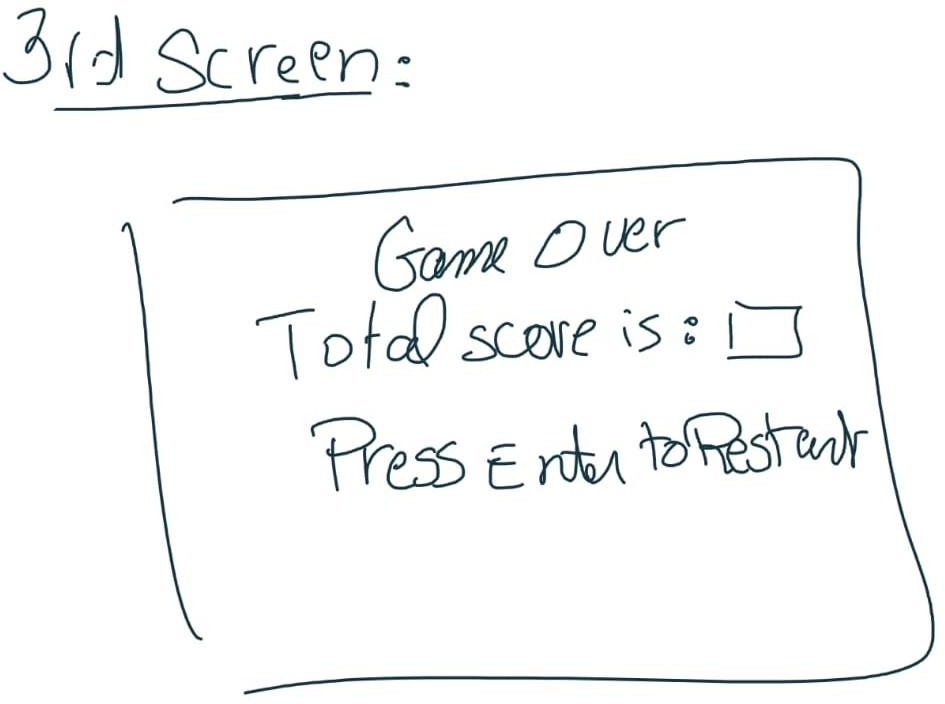 3rd Screen:
Game Over
Total score is:
Press Enter to Restart